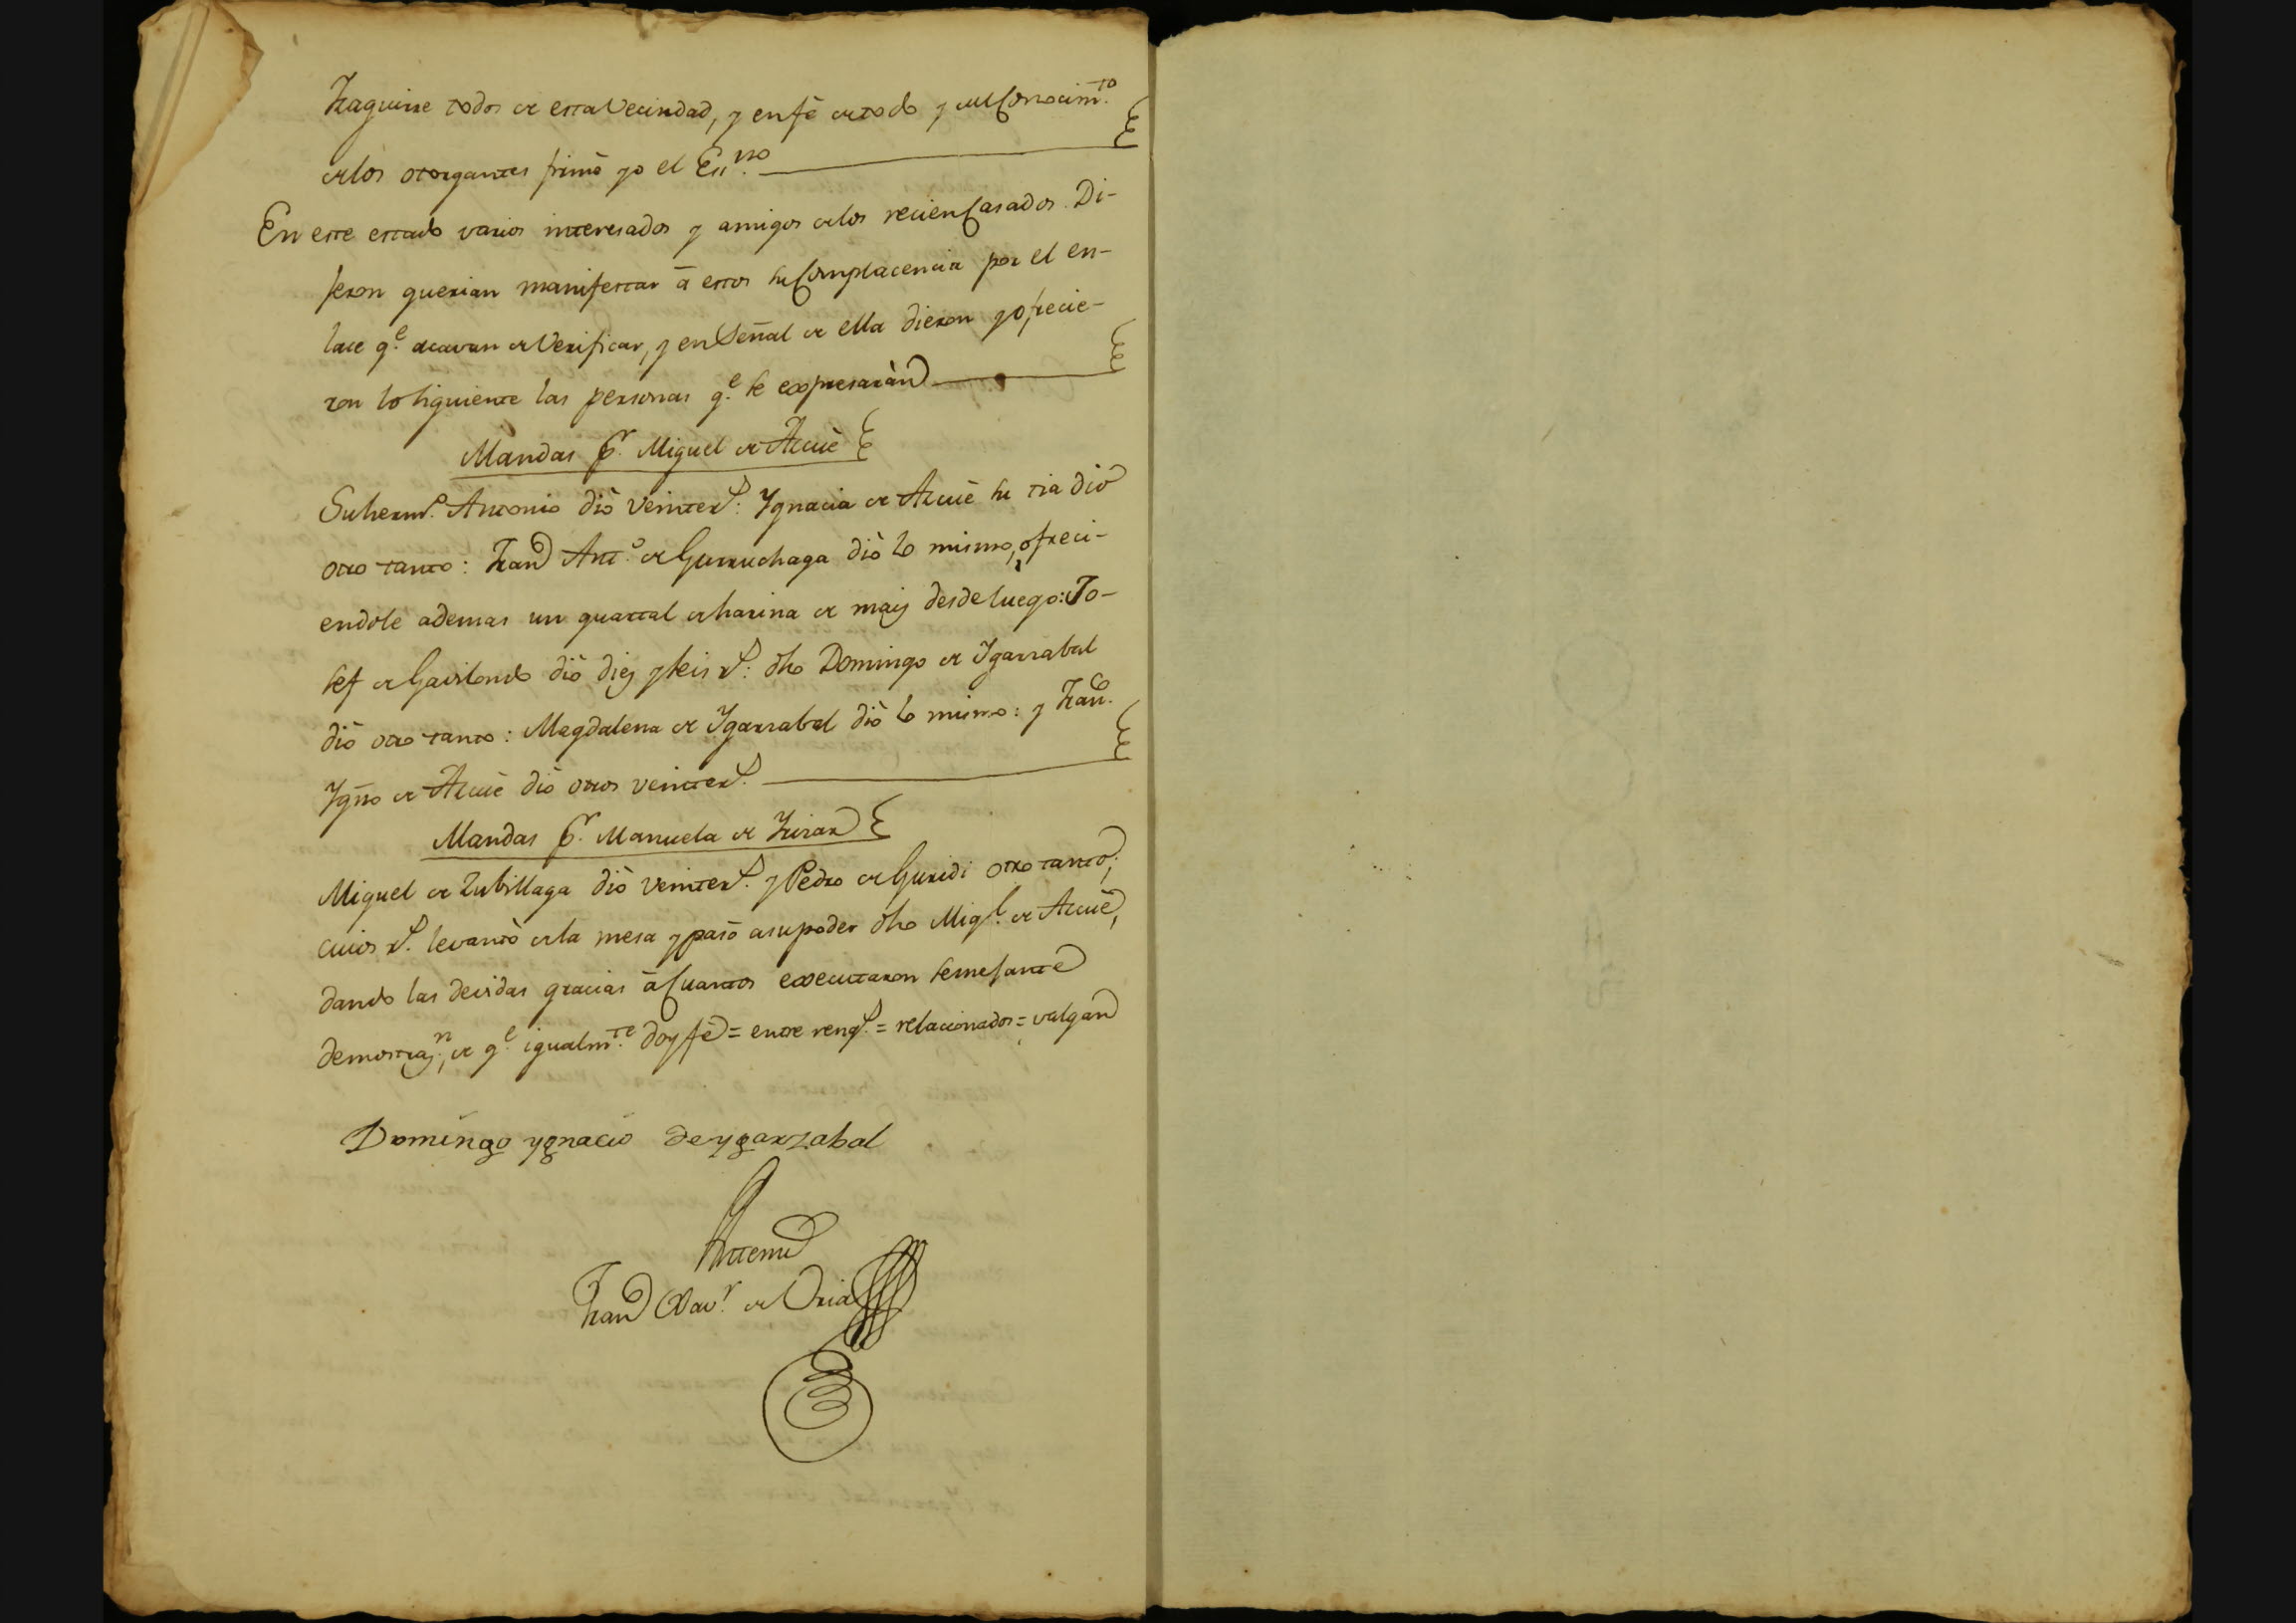 Yraguirre todos de esta Vecindad, y enfè detodo y del Conocim.to
delos otorgantes firmè yo el Ess.no
En este estado varios interesados y amigos delos recien Casados Di-
jeron querian manifestar à estos su Complacencia por el en-
lace q.e acavan de Verificar, y en Señal de ella dieron y ofrecie-
ron lo siguiente las personas q.e se expresaràn
Mandas p.r Miguel de Azcue
Su herm.o Antonio diò veinte r.s: Ygnacia de Azcue su tia diò
otro tanto: Fran.co Ant.o de Gurruchaga diò lo mismo, ofreci-
endole ademas un quartal de harina de maiz desde luego: Jo-
sef de Gavilondo diò diez y seis r.s: dho Domingo de Ygarzabal
diò otro tanto: Magdalena de Ygarzabal diò lo mismo: y Fran.co
Ygn.o de Azcue diò otros veinte r.s
Mandas p.r Manuela de
Miguel de Zubillaga diò veinte r.s y Pedro de Guridi otro tanto;
cuios r.s levantò dela mesa y pasò asupoder dho Mig.l de Azcue,
dando las devidas gracias à Cuantos executaron semejante
demostraz.n, de q.e igualm.te doy fè = entre reng.s = relacionados = valgan
Domingo ygnacio de ygarzabal
Antemi
Fran.co Xav.r de Oria